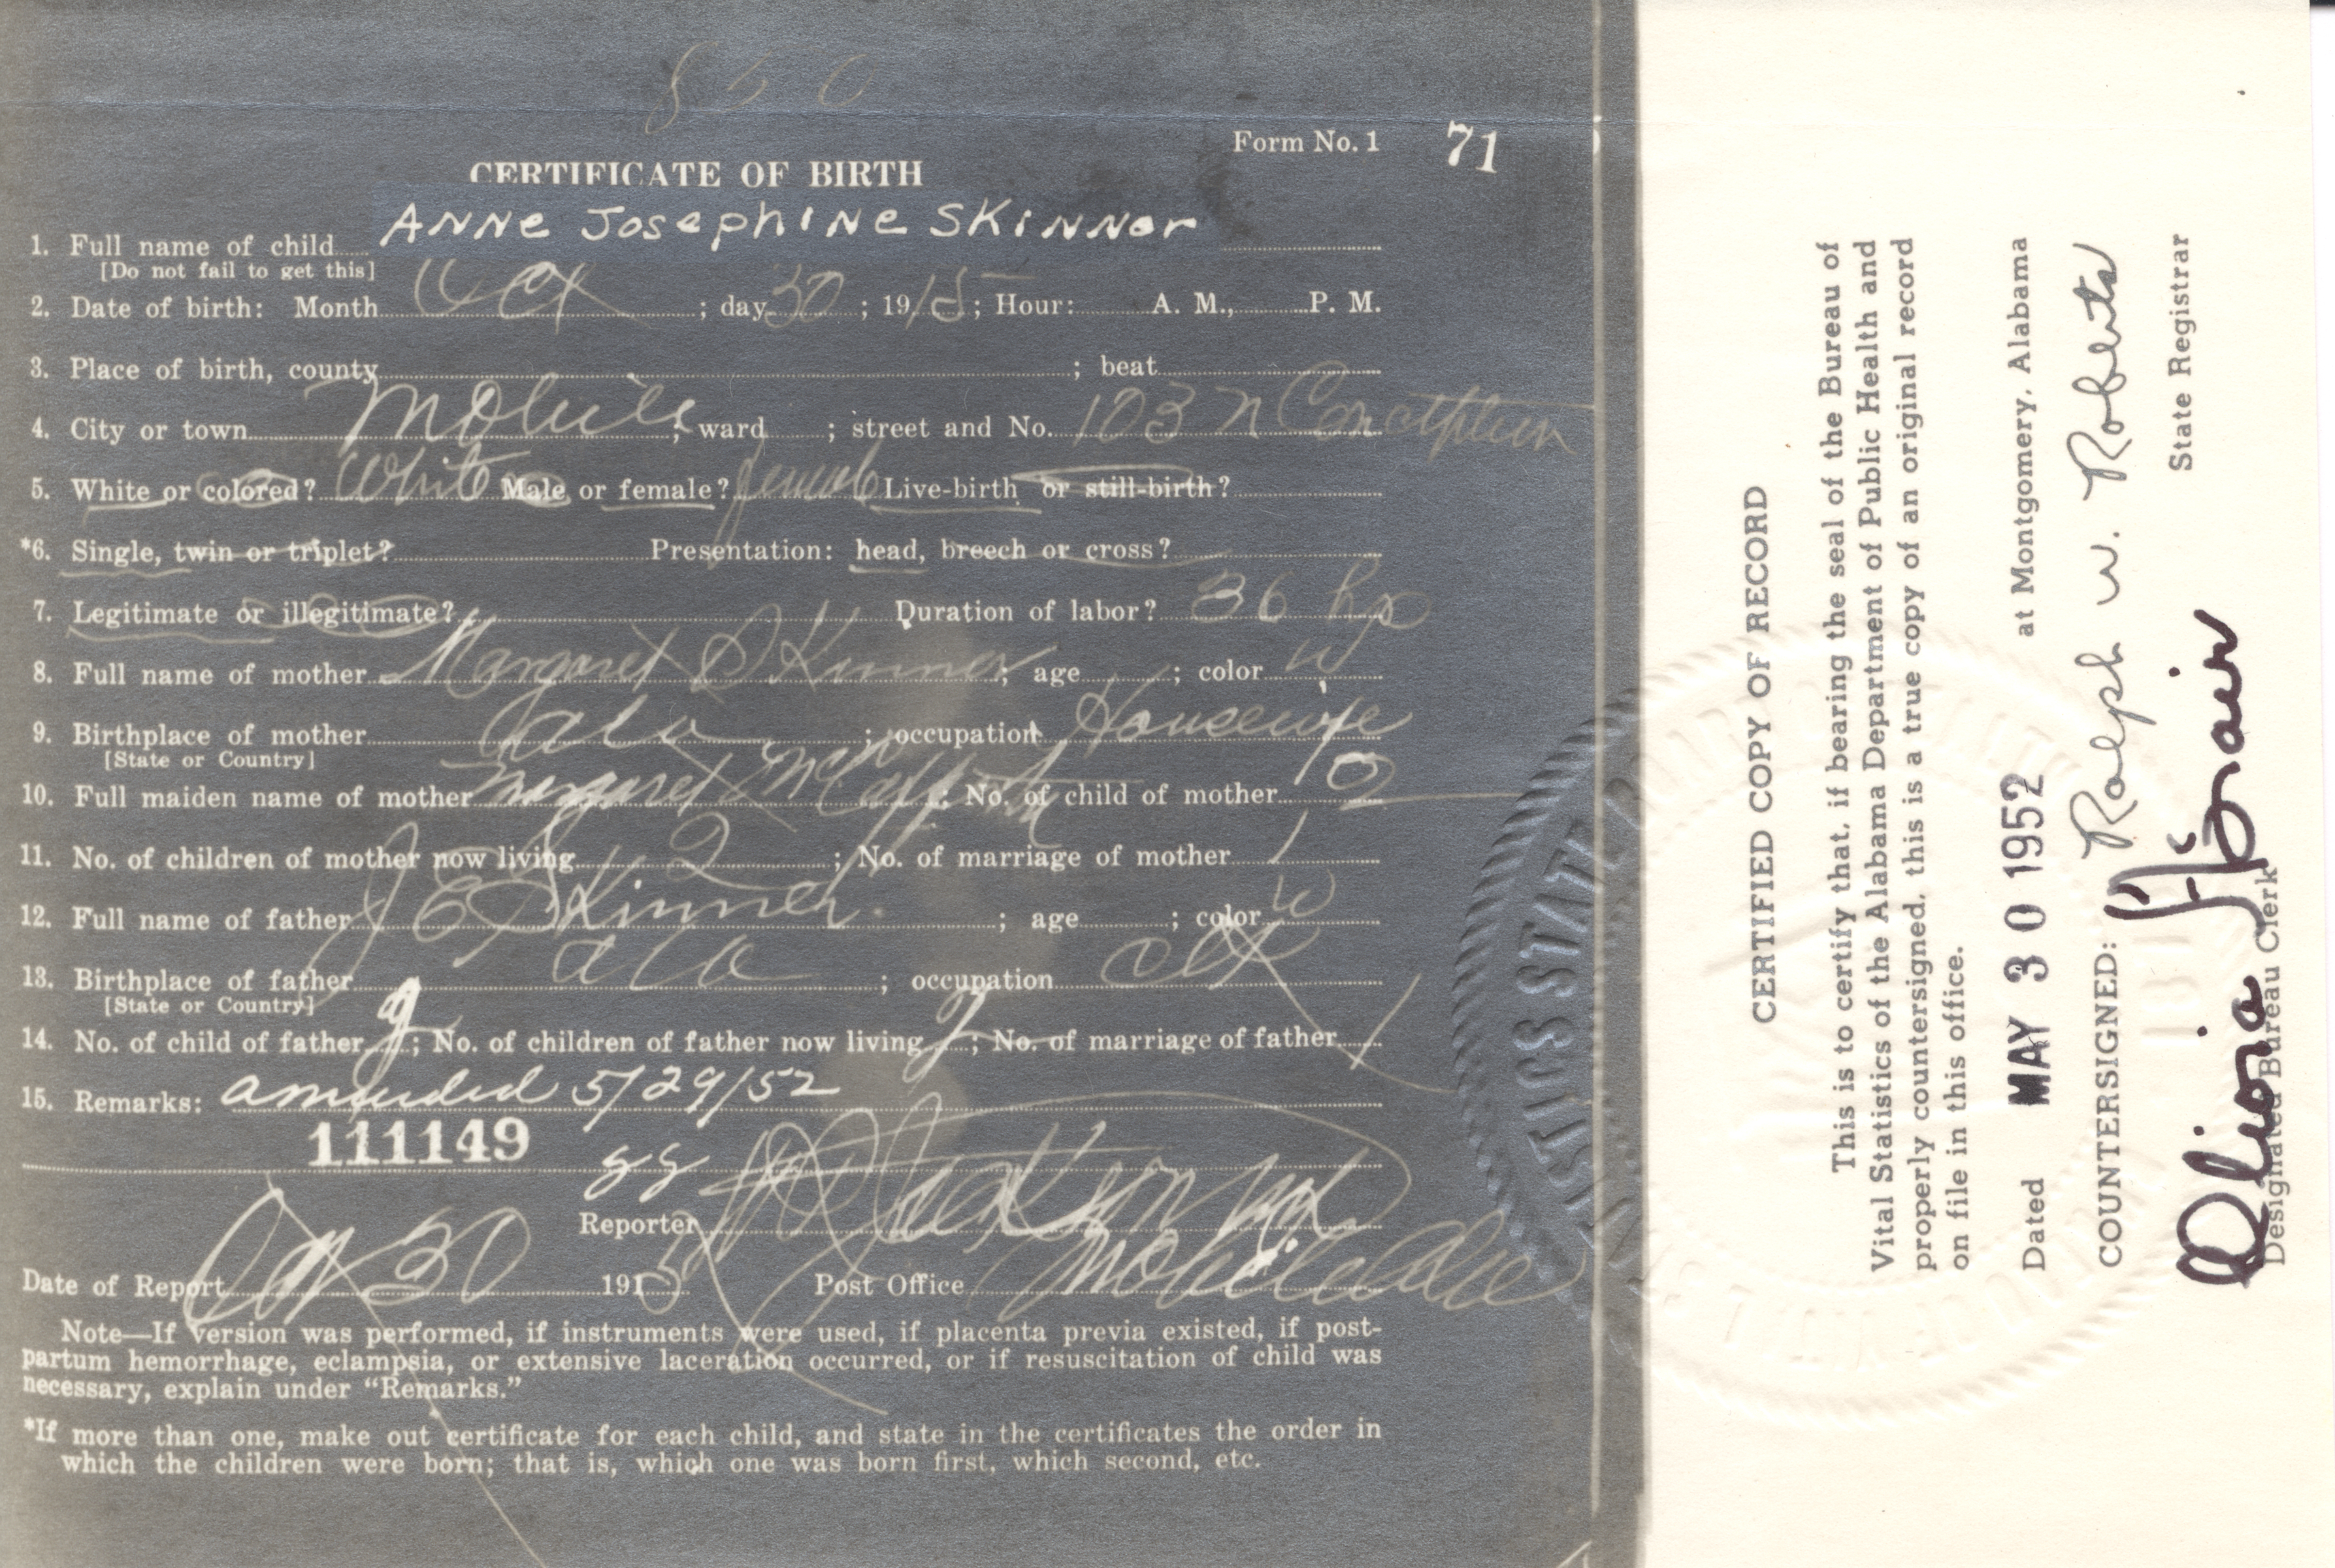 Form No. 1 71
CERTIFICATE OF BIRTH
1. Full name of child ANNe JosephINe SKiNNer
[Do not fail to get this]
2. Date of birth: Month Oct ; day 30 ; 1915 ; Hour: A. M., P. M.
3. Place of birth, county ; beat
4. City or town Mobile ; ward ; street and No. 103 N Conception
5. White or colored? White Male or female? female Live-birth or still-birth?
*6. Single, twin or triplet? Presentation: head, breech or cross?
7. Legitimate or illegitimate? Duration of labor? 36 hrs
8. Full name of mother Margaret Skinner ; age ; color W
9. Birthplace of mother Ala ; occupation Housewife
[State or Country]
10. Full maiden name of mother Margaret ; No. of child of mother 2
11. No. of children of mother now living 2 ; No. of marriage of mother 1
12. Full name of father J E Skinner ; age ; color W
13. Birthplace of father Ala ; occupation
[State or Country]
14. No. of child of father 2 ; No. of children of father now living 2 ; No. of marriage of father 1
15. Remarks: amended 5/29/52
111149
Reporter
Date of Report Oct 30 1915 Post Office Mobile Ala
Note—If version was performed, if instruments were used, if placenta previa existed, if post-
partum hemorrhage, eclampsia, or extensive laceration occurred, or if resuscitation of child was
necessary, explain under “Remarks.”
*If more than one, make out certificate for each child, and state in the certificates the order in
which the children were born; that is, which one was born first, which second, etc.
CERTIFIED COPY OF RECORD
This is to certify that, if bearing the seal of the Bureau of
Vital Statistics of the Alabama Department of Public Health and
properly countersigned, this is a true copy of an original record
on file in this office.
Dated MAY 30 1952 at Montgomery, Alabama
Ralph W. Roberts
COUNTERSIGNED: State Registrar
Olivia
Designated Bureau Clerk